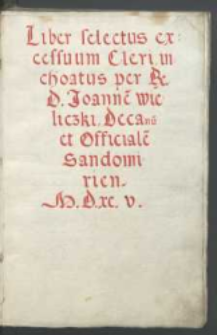 Liber selectus ex
cessuum Cleri, in
choatus per R.
D. Joannē Wie
liczki, Decanū
et Officialē
Sandomi
rien.
M.D.xc.v.